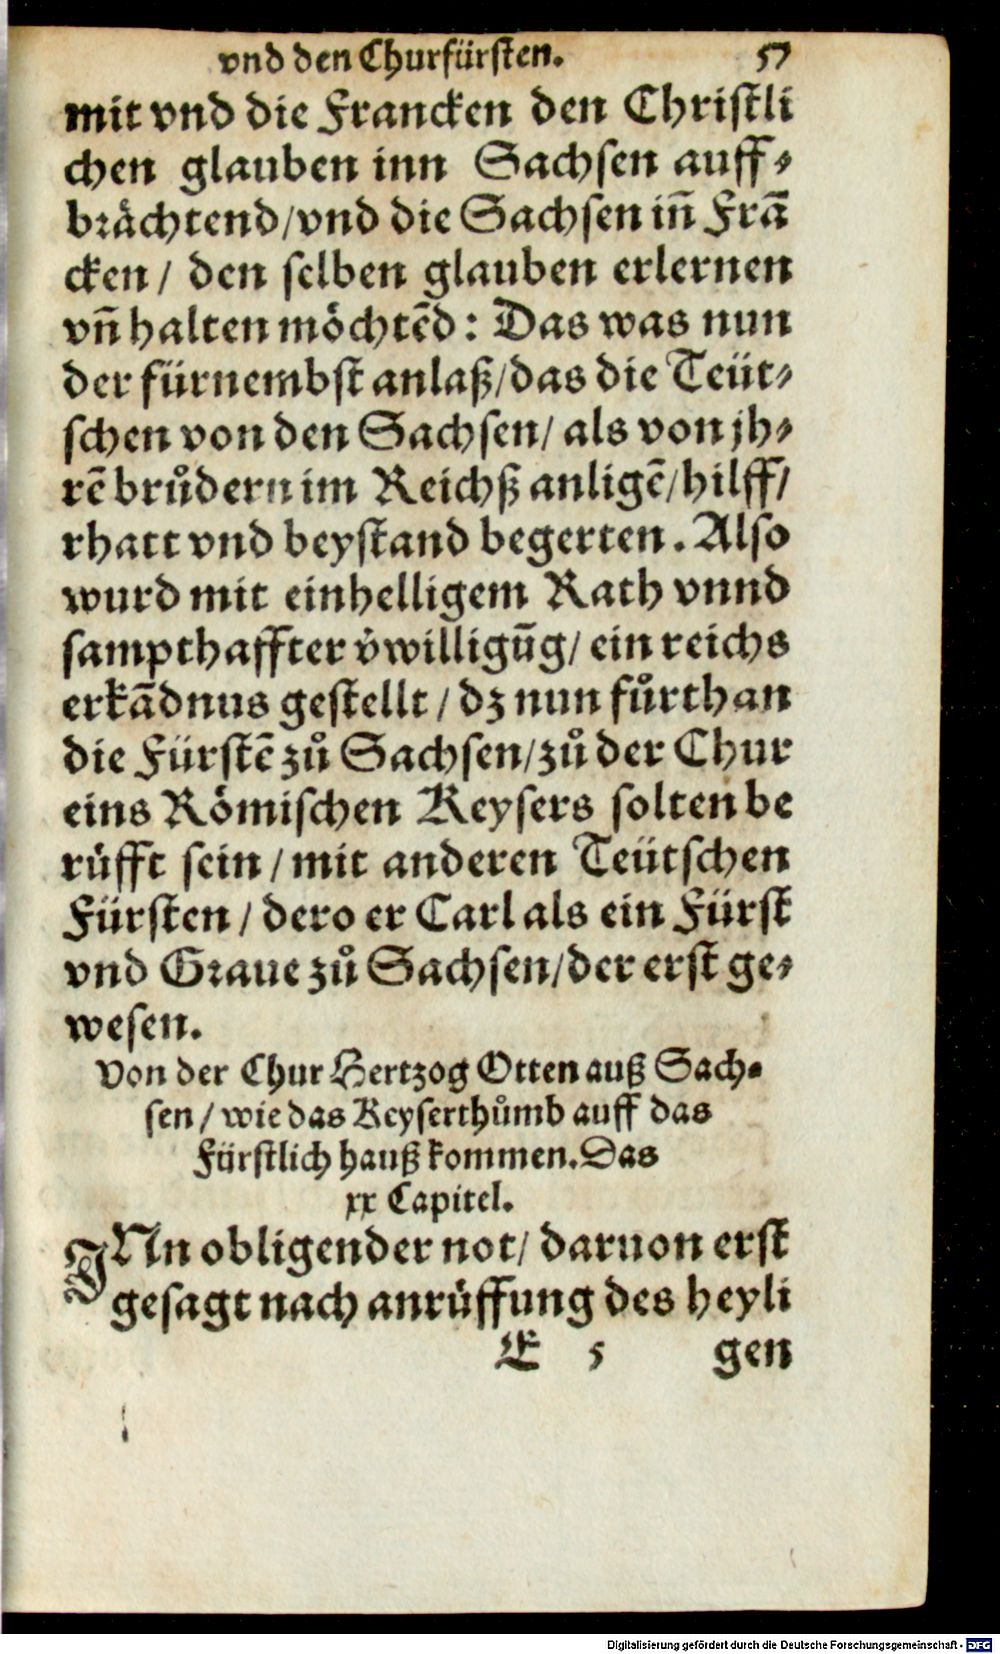 vnd den Churfürsten. 57
mit vnd die Francken den Christli
chen glauben inn Sachsen auff⸗
brächtend/vnd die Sachsen iñ Frã
cken/ den selben glauben erlernen
vñ halten möchtẽd: Das was nun
der fürnembst anlaß/das die Teüt⸗
schen von den Sachsen/ als von jh⸗
rẽ brůdern im Reichß anligẽ/hilff/
rhatt vnd beystand begerten. Also
wurd mit einhelligem Rath vnnd
sampthaffter v̓willigũg/ ein reichs
erkãdnus gestellt/ dz nun fůrthan
die Fürstẽ zů Sachsen/zů der Chur
eins Römischen Keysers solten be
rüfft sein/ mit anderen Teütschen
Fürsten/ dero er Carl als ein Fürst
vnd Graue zů Sachsen/der erst ge⸗
wesen.
Von der Chur Hertzog Otten auß Sach⸗
sen/ wie das Keyserthůmb auff das
Fürstlich hauß kommen. Das
xx Capitel.
INn obligender not/ daruon erst
gesagt nach anrüffung des heyli
E 5 gen
Digitalisierung gefördert durch die Deutsche Forschungsgemeinschaft - DFG